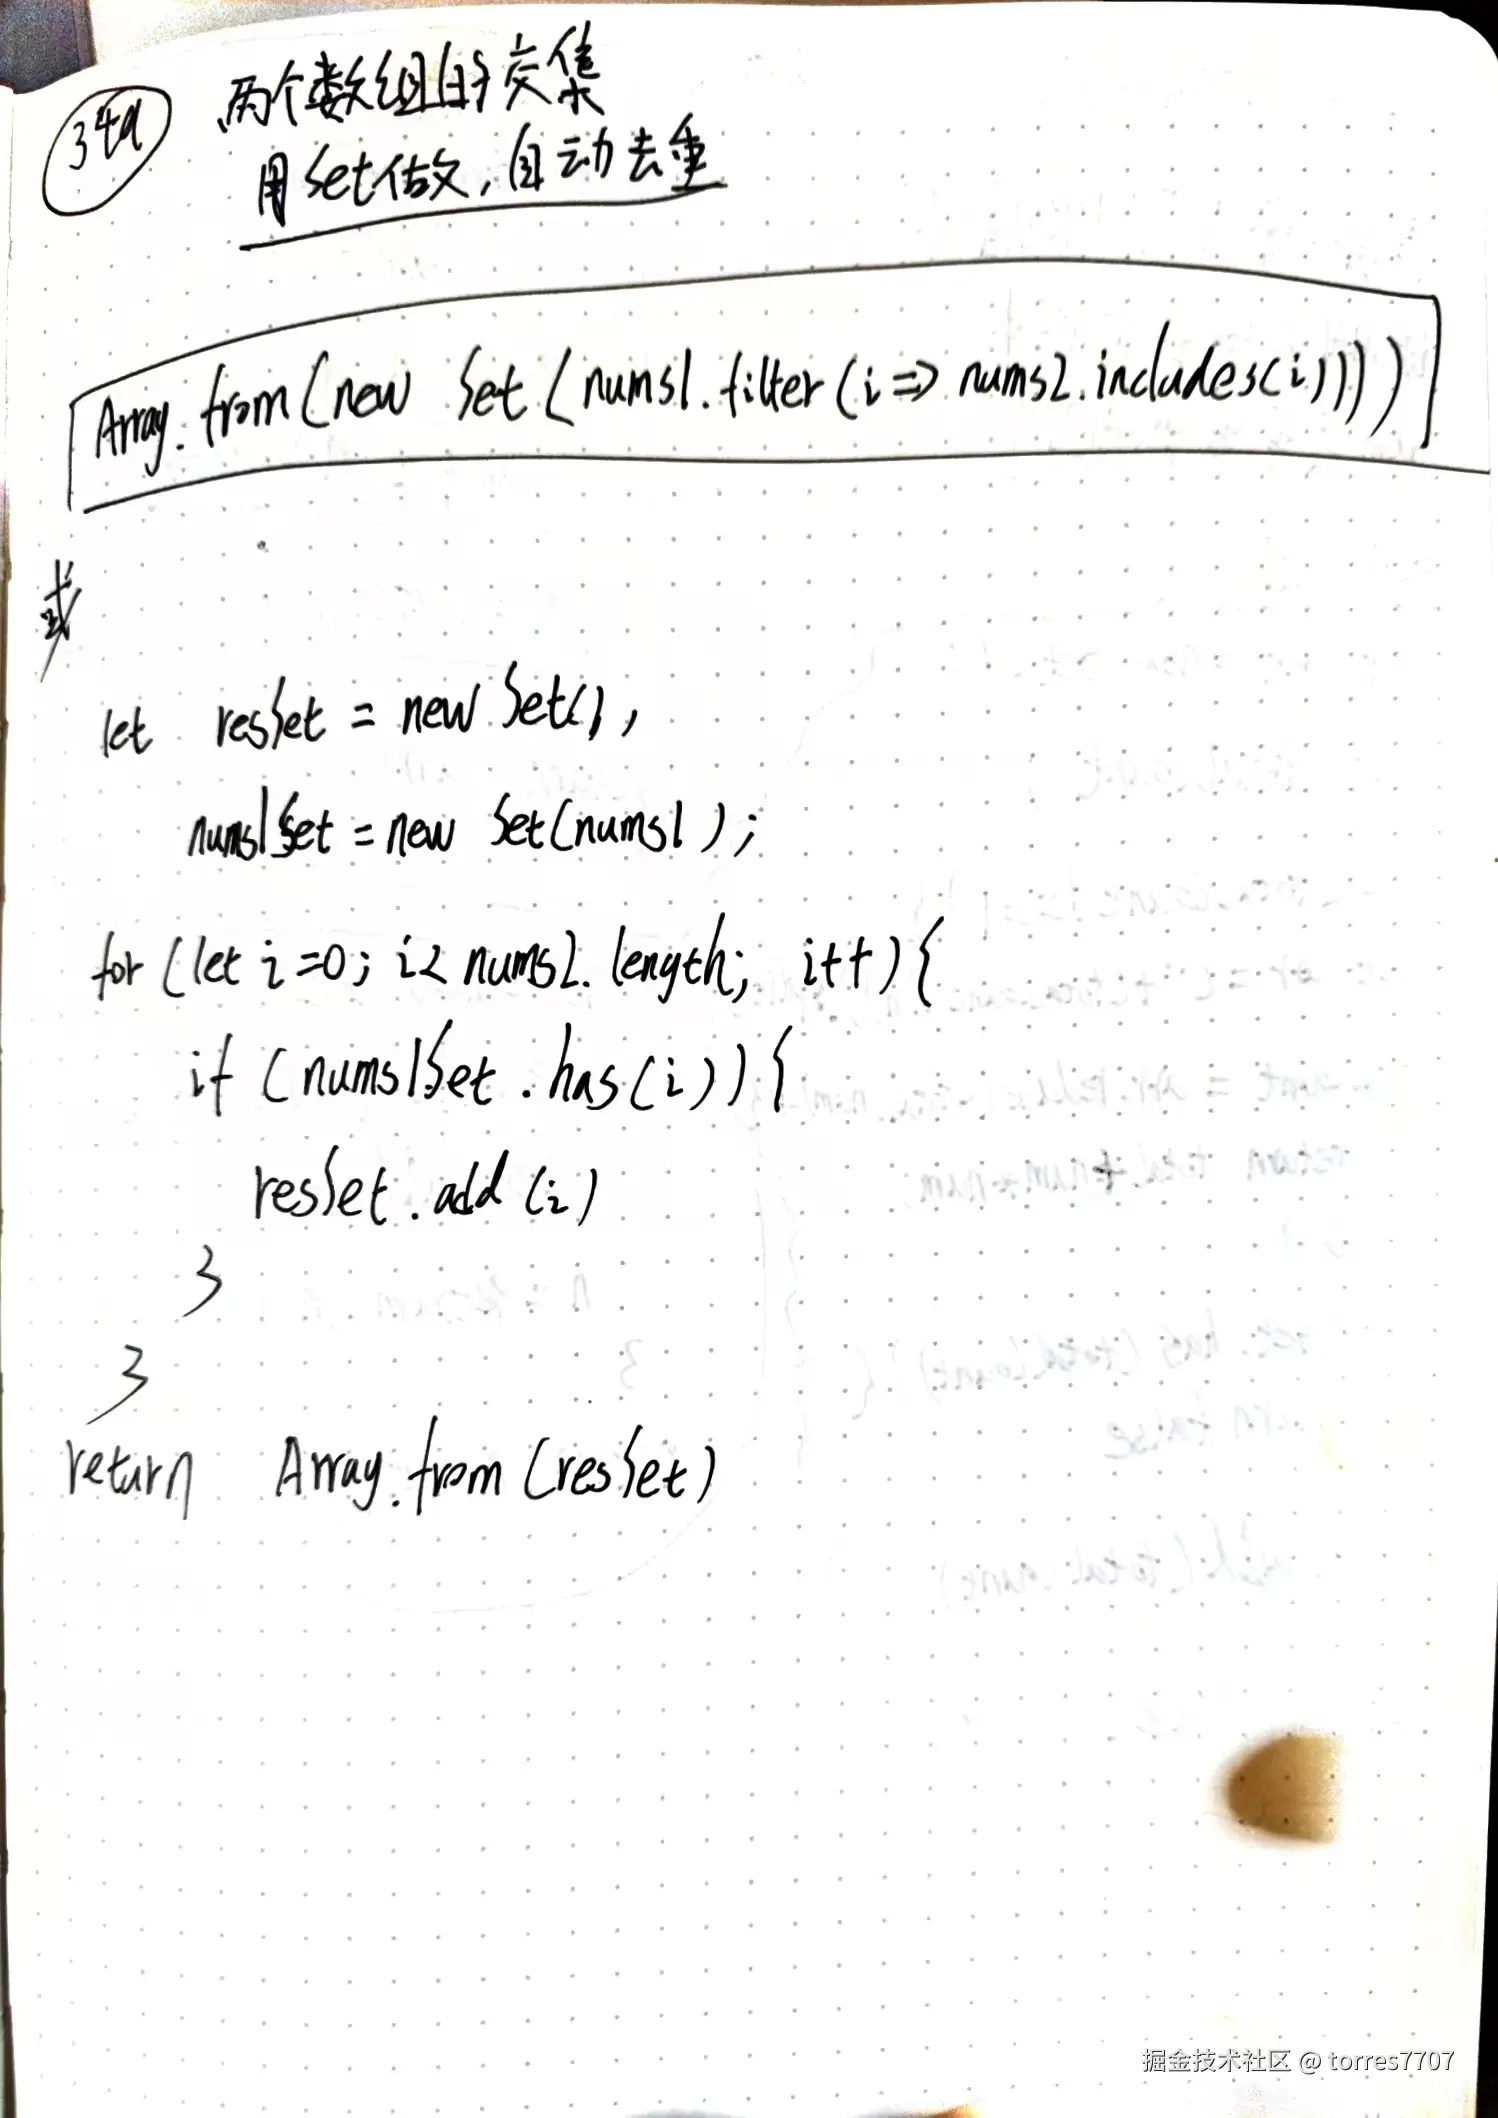 349 两个数组的交集
用Set做,自动去重
Array.from(new Set(nums1.filter(i=>nums2.includes(i))))
或
let resSet = new Set(),
nums1Set = new Set(nums1);
for (let i=0; i< nums2.length; i++){
if (nums1Set.has(i)){
resSet.add(i)
}
}
return Array.from(resSet)
掘金技术社区 @ torres7707